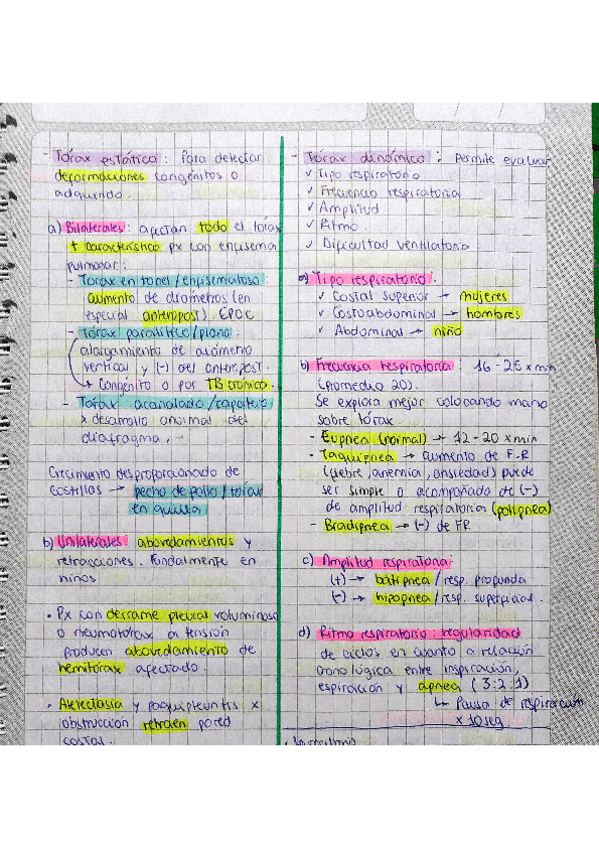 - Tórax estático : Para detectar
deformaciones congénitas o
adquirido.
a) Bilaterales: afectan todo el tórax
+ característico px con enfisema
pulmonar:
- Tórax en tonel / enfisematoso:
aumento de diámetros (en
especial anteropost). EPOC
- Tórax paralítico / plano:
alargamiento de diámetro
vertical y (-) del anteropost.
↳ Congénito o por TB crónica.
- Tórax acanalado / zapatero
x desarrollo anormal del
diafragma. -
Crecimiento desproporcionado de
costillas → pecho de pollo / tórax
en quilla.
b) Unilaterales: abovedamientos y
retracciones. Fundalmente en
niños
• Px con derrame pleural voluminoso
o neumotórax a tensión
producen abovedamiento de
hemitórax afectado.
• Atelectasia y paquipleuritis x
obstrucción retraen pared
costal.
- Tórax dinámico : Permite evaluar
✓ Tipo respiratorio
✓ Frecuencia respiratoria
✓ Amplitud
✓ Ritmo.
✓ Dificultad ventilatoria
a) Tipo respiratorio:
✓ Costal superior → mujeres
✓ Costoabdominal → hombres
✓ Abdominal → niño
b) Frecuencia respiratoria: 16-25 x min
(Promedio 20).
Se explora mejor colocando mano
sobre tórax
- Eupnea (normal) → 12-20 x min
- Taquipnea → aumento de F.R
(fiebre, anemia, ansiedad) puede
ser simple o acompañado de (-)
de amplitud respiratoria (polipnea)
- Bradipnea → (-) de FR
c) Amplitud respiratoria:
(+) → batipnea / resp. profunda
(-) → hipopnea / resp. superficial.
d) Ritmo respiratorio: regularidad
de ciclos en cuanto a relación
cronológica entre inspiración,
espiración y apnea (3:2:1)
↳ Pausa de respiración
x 10seg